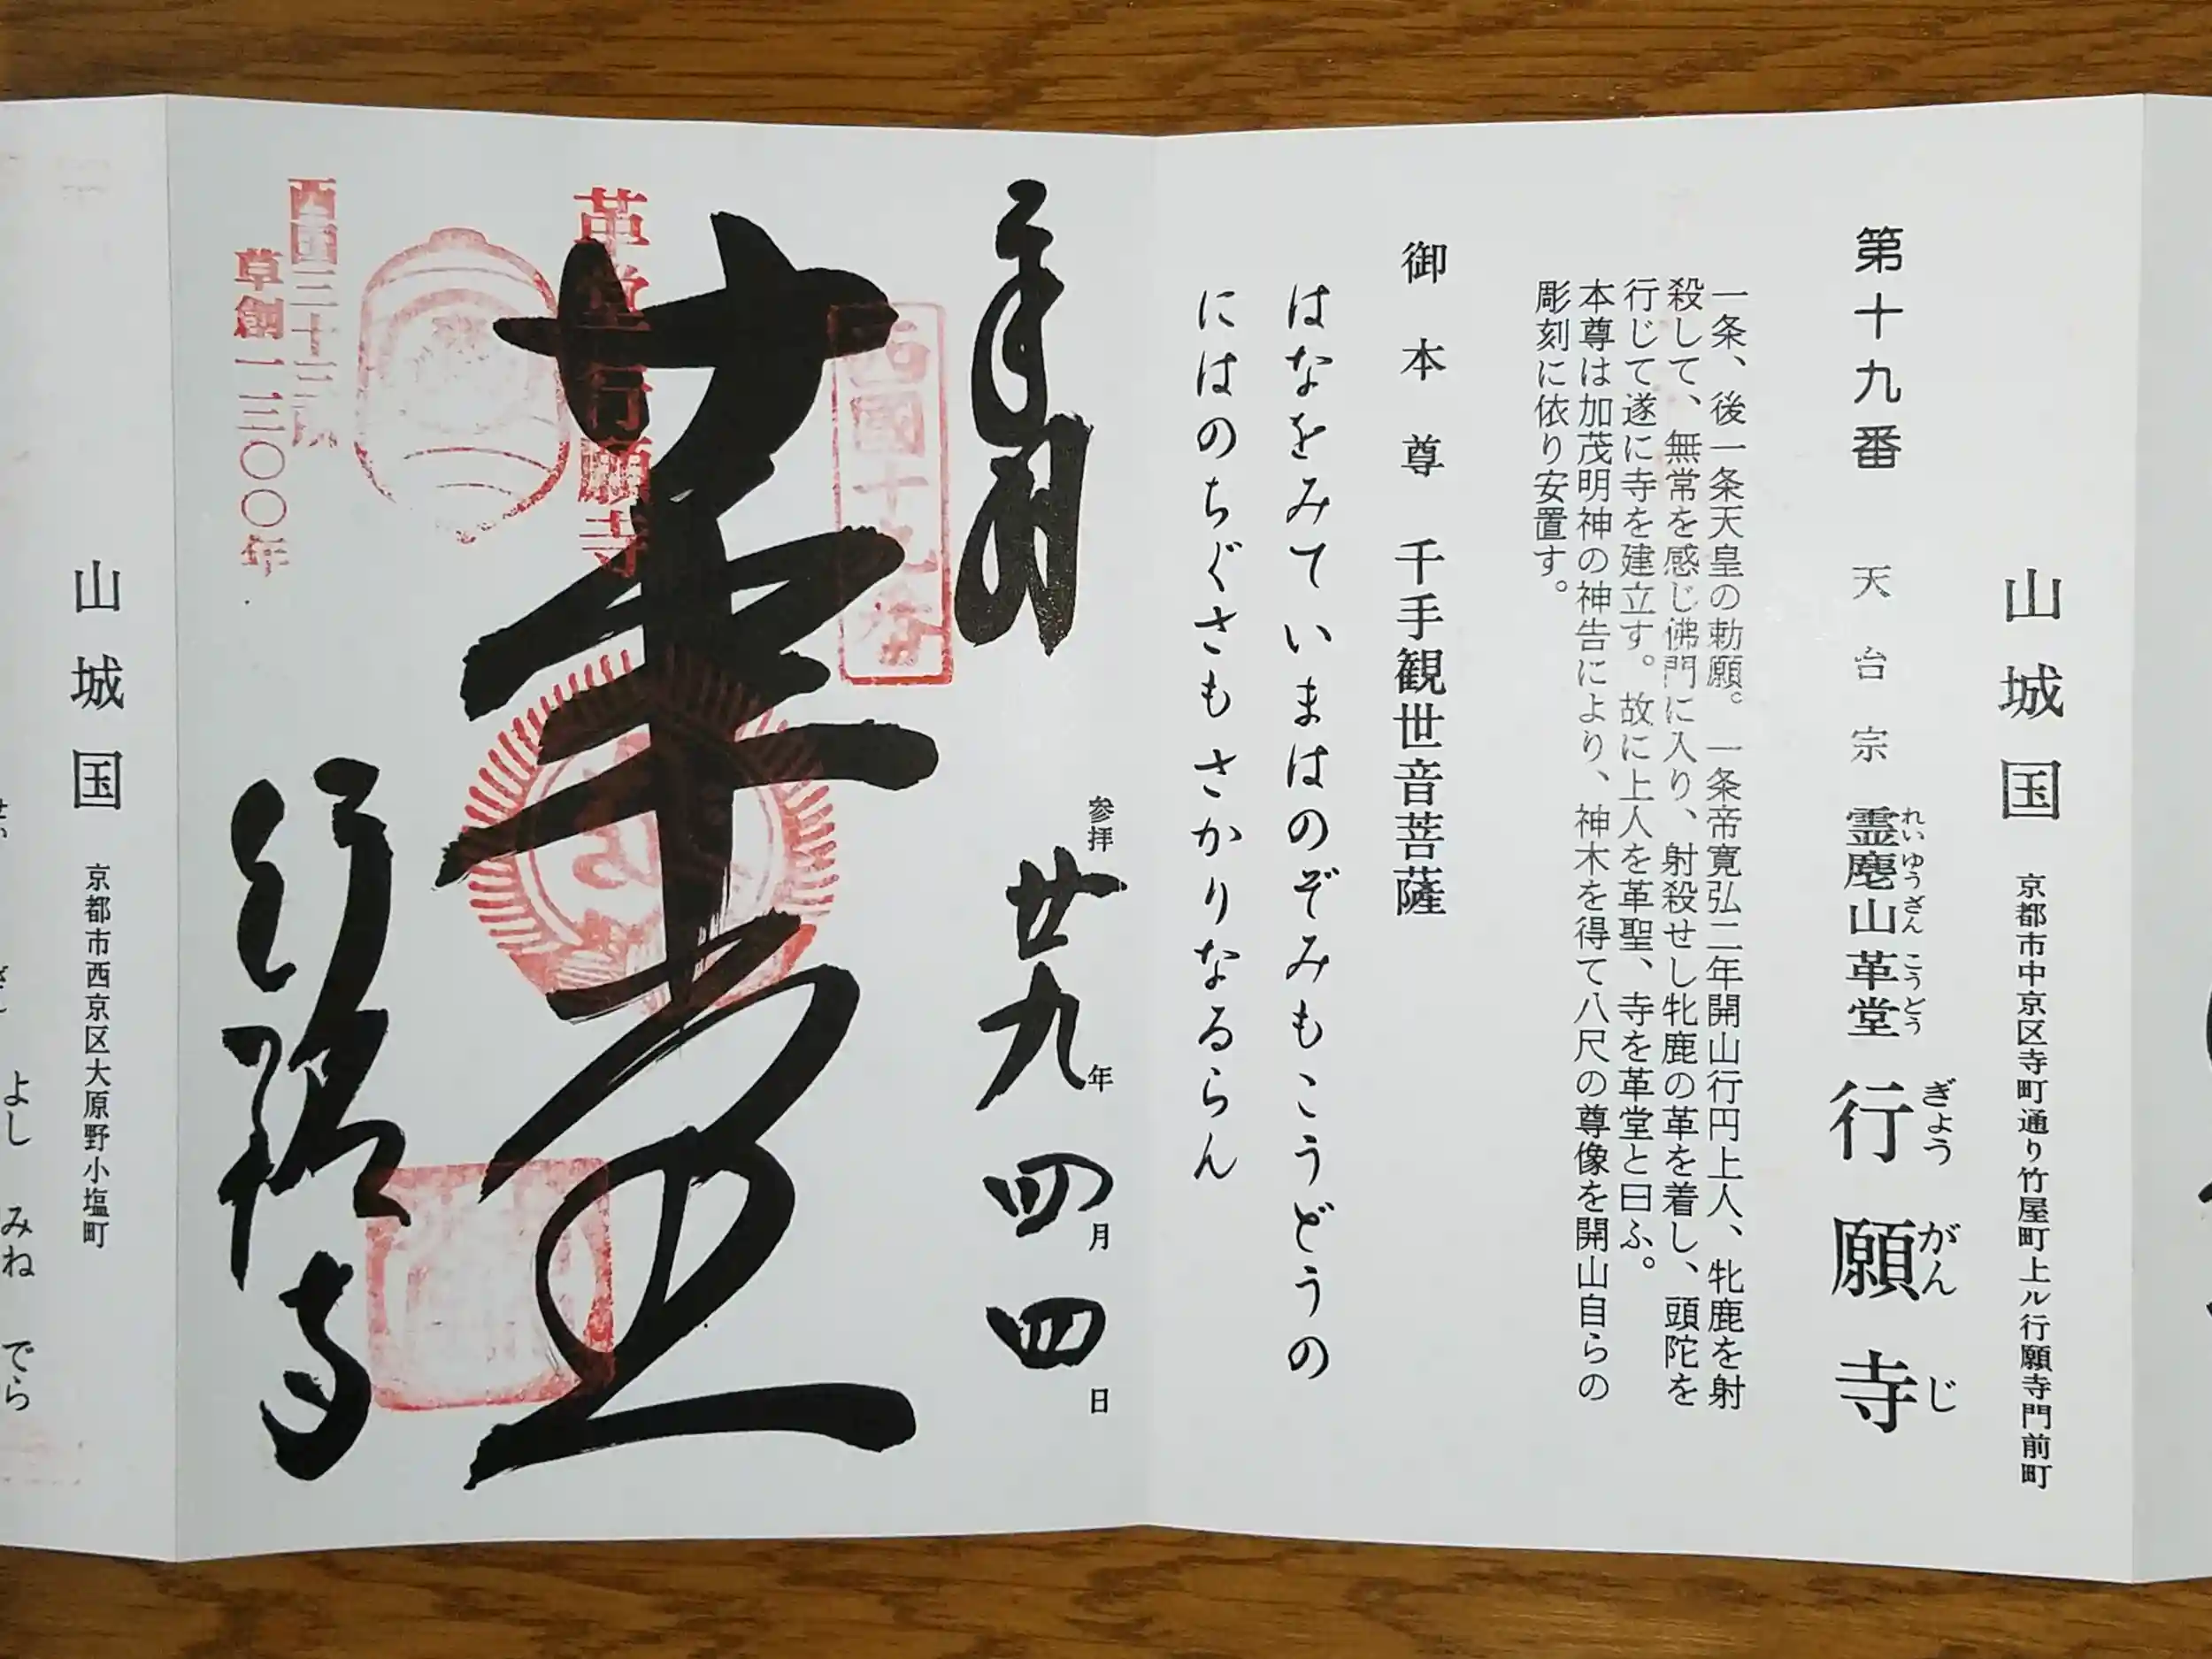 山城国 京都市中京区寺町通り竹屋町上ル行願寺門前町
第十九番 天台宗 霊麀山革堂 行願寺
れいゆうざん こうどう ぎょう がん じ
一条、後一条天皇の勅願。一条帝寛弘二年開山行円上人、牝鹿を射
殺して、無常を感じ佛門に入り、射殺せし牝鹿の革を着し、頭陀を
行じて遂に寺を建立す。故に上人を革聖、寺を革堂と曰ふ。
本尊は加茂明神の神告により、神木を得て八尺の尊像を開山自らの
彫刻に依り安置す。
御本尊 千手観世音菩薩
はなをみていまはのぞみもこうどうの
にはのちぐさもさかりなるらん
奉拝
参拝 廿九年 四月 四日
西國十九番
革堂
革堂行願寺
行願寺
西国三十三所
草創一三〇〇年
山城国 京都市西京区大原野小塩町
よし みね でら